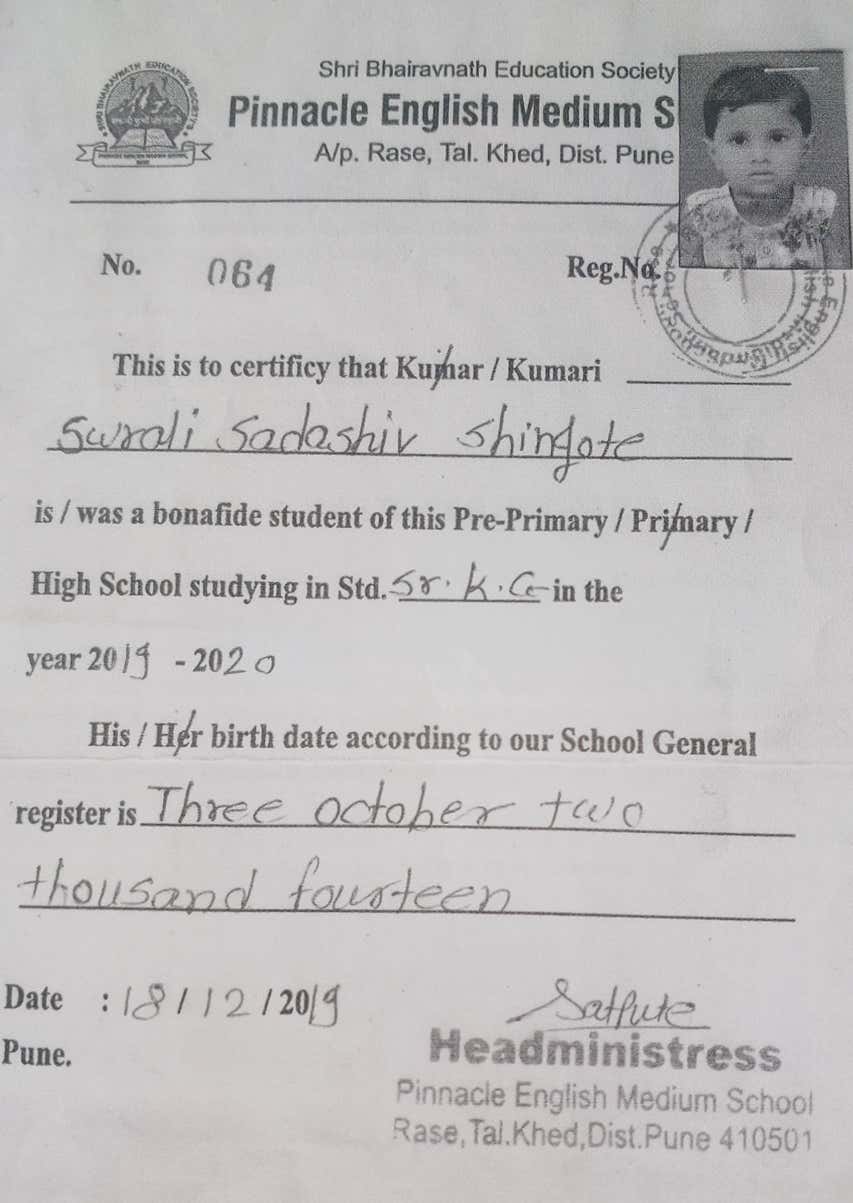 SHRI BHAIRAVNATH EDUCATION SOCIETY'S
Shri Bhairavnath Education Society
Pinnacle English Medium S
A/p. Rase, Tal. Khed, Dist. Pune
No. 064 Reg.No.
This is to certificy that Kumar / Kumari
Swrali Sadashiv Shingote
is / was a bonafide student of this Pre-Primary / Primary /
High School studying in Std. Sr. K. G in the
year 2019 - 2020
His / Her birth date according to our School General
register is Three october two
thousand fourteen
Date : 18 / 12 / 2019
Pune.
Satpute
Headministress
Pinnacle English Medium School
Rase,Tal.Khed,Dist.Pune 410501